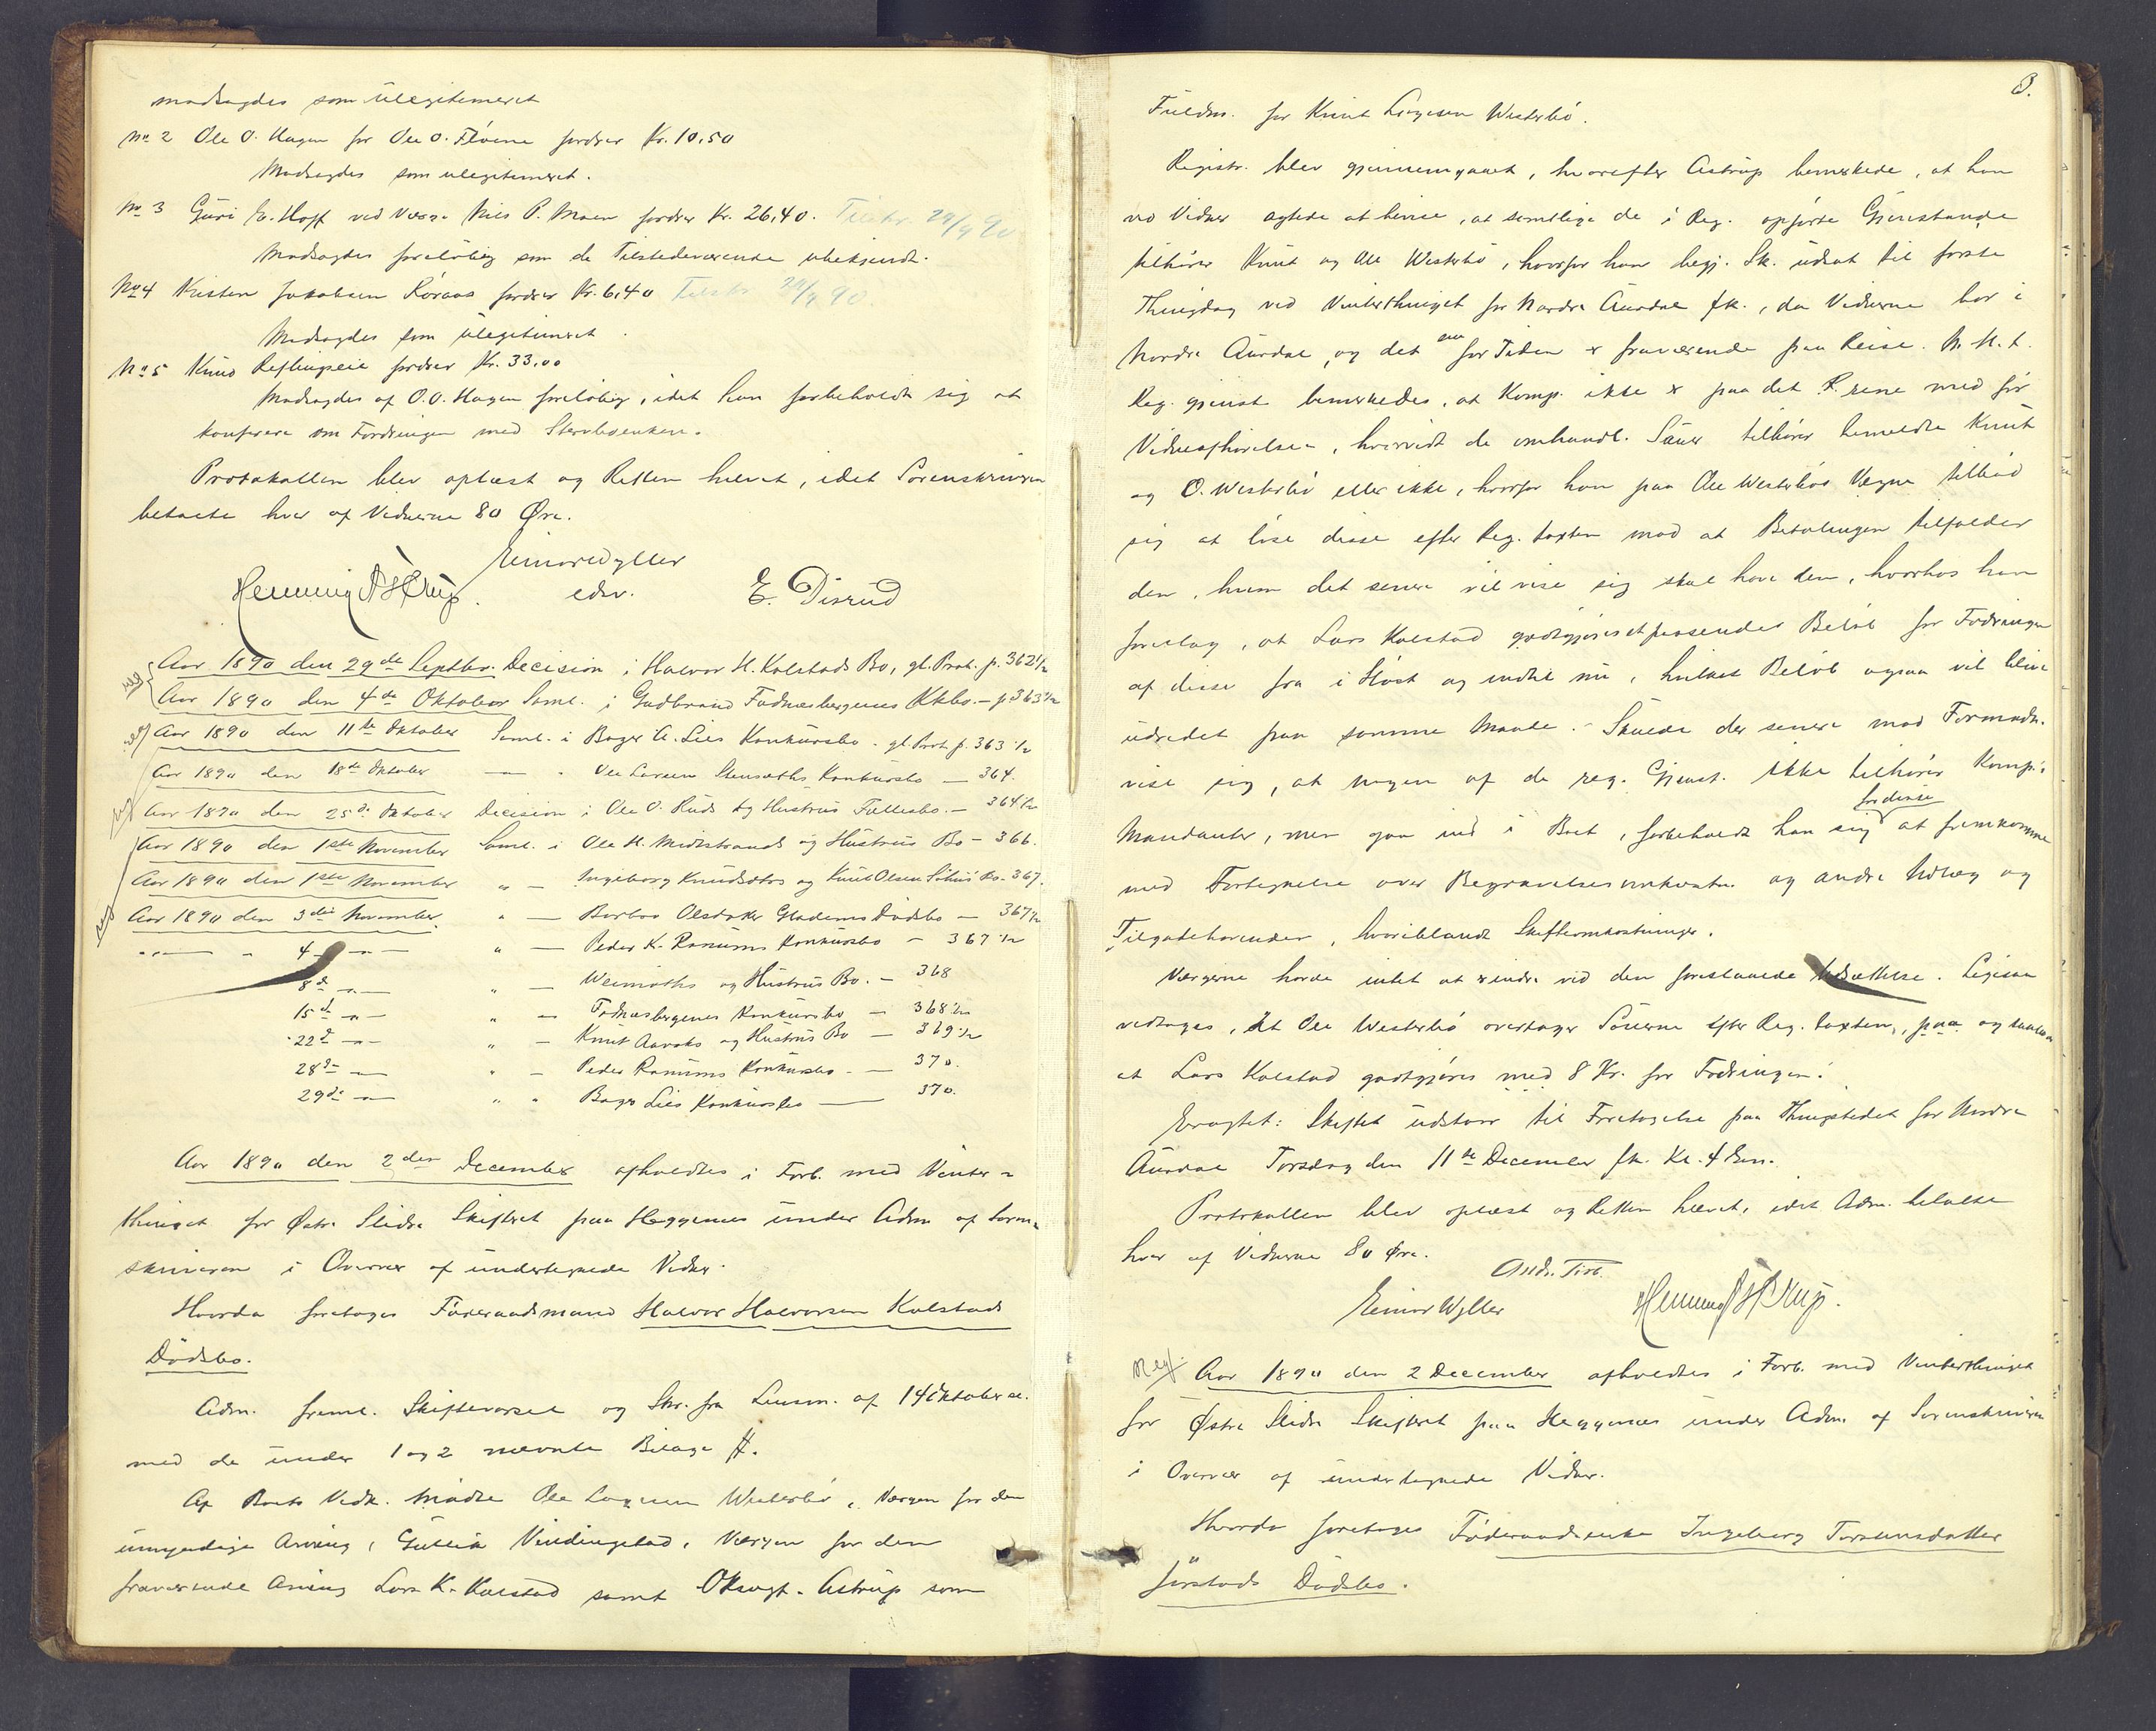 modsagdes som ulegitimeret
No 2 Ole O. Hagen for Ole O. Fløvne fordrer Kr. 10,50
Modsagdes som ulegitimeret.
No 3 Guri E. Hoff ved Værge Nils P. Moen fordrer Kr. 26,40. Tilstr. 29/9 90
Modsagdes foreløbig som de Tilstedeværende ubekjendt.
No 4 Kristen Jakobsen Røraas fordrer Kr. 6,40 Tilstr. 29/9 90
Modsagdes som ulegitimeret.
No 5 Knud fordrer Kr. 33,00
Modsagdes af O.O. Hagen foreløbig, idet han forbeholdt sig at
konferere om Fordringen med Stervboenken.
Protokollen blev oplæst og Retten hævet, idet Sorenskriveren
betalte hver af Vidnerne 80 Øre.
Einar Wyller
Henning Astrup. edsv. E. Disrud
Aar 1890 den 29de Septbr. Decision i Halvor H. Kolstads Bo, gl. Prot. p. 362 1/2
Aar 1890 den 4de Oktober Saml. i Gudbrand Fodnæsbergenes Kkbo. — p 363 1/2
Aar 1890 den 11te Oktober Saml. i Bager A. Lies Konkursbo - gl. Prot. p. 363 1/2
Aar 1890 den 18de Oktober — " Ole Larsen Stensæths Konkursbo — 364.
Aar 1890 den 25de Oktober Decision i Ole O. Ruds og Hustrus Fællesbo. — 364 1/2
Aar 1890 den 1ste November Saml. i Ole H. Midtstrands og Hustrus Bo — 366.
Aar 1890 den 1ste November " — Ingeborg Knudsdtrs og Knut Olsen Bo. - 367.
Aar 1890 den 3die November. " — Barbro Olsdatter Gladems Dødsbo — 367 1/2
" — " 4 — " — " — Peder K. Ranums Konkursbo — 367 1/2
8de — " — " — Weimoths og Hustrus Bo. — 368
15de — " — " — Fodnæsbergenes Konkursbo — 368 1/2
22de — " — " — Knut Aavoks og Hustrus Bo — 369 1/2
28de — " — " — Peder Ranums Konkursbo — 370.
29de — " — " " Bager Lies Konkursbo — 370.
Aar 1890 den 2den December afholdtes i Forb. med Vinter-
thinget for Østre Slidre Skifteret paa Heggenes under Adm af Soren-
skriveren i Overvær af undertegnede Vidner.
Hvorda foretoges Føderaadsmand Halvor Halvorsen Kolstads
Dødsbo.
Adm. freml. Skiftevarsel og Skr. fra Lensm. af 14 Oktober
med de under 1 og 2 nævnte Bilage #.
Af Boets Vedk. mødte Ole Westerbø, Værgen for den
umyndige Arving, Gullik Vindingstad, Værgen for den
fraværende Arving Lars K. Kolstad samt OKsagf. Astrup som
3.
Fuldm. for Knut Westerbø.
Registr. blev gjennemgaaet, hvorefter Astrup bemerkede, at han
ved Vidner agtede at bevise, at samtlige de i Reg. opførte Gjenstande
tilhører Knut og Ole Westerbø, hvorfor han begj. Sk. udsat til første
Thingdag ved Vinterthinget for Nordre Aurdal fk., da Vidnerne bor i
Nordre Aurdal, og det ene for Tiden er fraværende paa Reise. M.H.t.
Reg. gjenst. bemerkedes, at Komp. ikke er paa det Rene med før
Vidneafhørelsen, hvorvidt de omhandl. Sauer tilhører bemeldte Knut
og O. Westerbø eller ikke, hvorfor han paa Ole Westerbøs Vegne tilbød
sig at løse disse efter Reg. taxten mod at Betalingen tilfalder
den, hvem det senere vil vise sig skal have den, hvorhos han
foreslog, at Lars Kolstad godtgjøres et passende Beløb for Fodringen
af disse fra i Høst og indtil nu, hvilket Beløb ogsaa vil blive
udredet paa samme Maade. Skulde der senere mod Formodn.
vise sig, at nogen af de reg. Gjenst. ikke tilhører Komp.s
Mandanter, men gaa ind i Boet, forbeholdt han sig for disse at fremkomme
med Fortegnelse over Begravelsesomkostn. og andre Udlæg og
Tilgodehavender, hvoriblandt Skifteomkostninger.
Værgerne havde intet at erindre ved den foreslaaede Udsættelse. Ligesaa
vedtoges, at Ole Westerbø overtager Sauerne efter Reg. taxten, paa og
at Lars Kolstad godtgjøres med 8 Kr. for Fodringen.
Eragtet: Skiftet udstaar til Foretagelse paa Thingstedet for Nordre
Aurdal Torsdag den 11te December fk. Kl. 4 Em.
Protokollen blev oplæst og Retten hævet, idet Adm. betalte
hver af Vidnerne 80 Øre.
Andr. Tiri.
Einar Wyller Henning Astrup.
Aar 1890 den 2 December afholdtes i Forb. med Vinterthinget
for Østre Slidre Skifteret paa Heggenes under Adm. af Sorenskriveren
i Overvær af undertegnede Vidner.
Hvorda foretoges Føderaadsenke Ingeborg Torstensdatter
Jørstads Dødsbo.